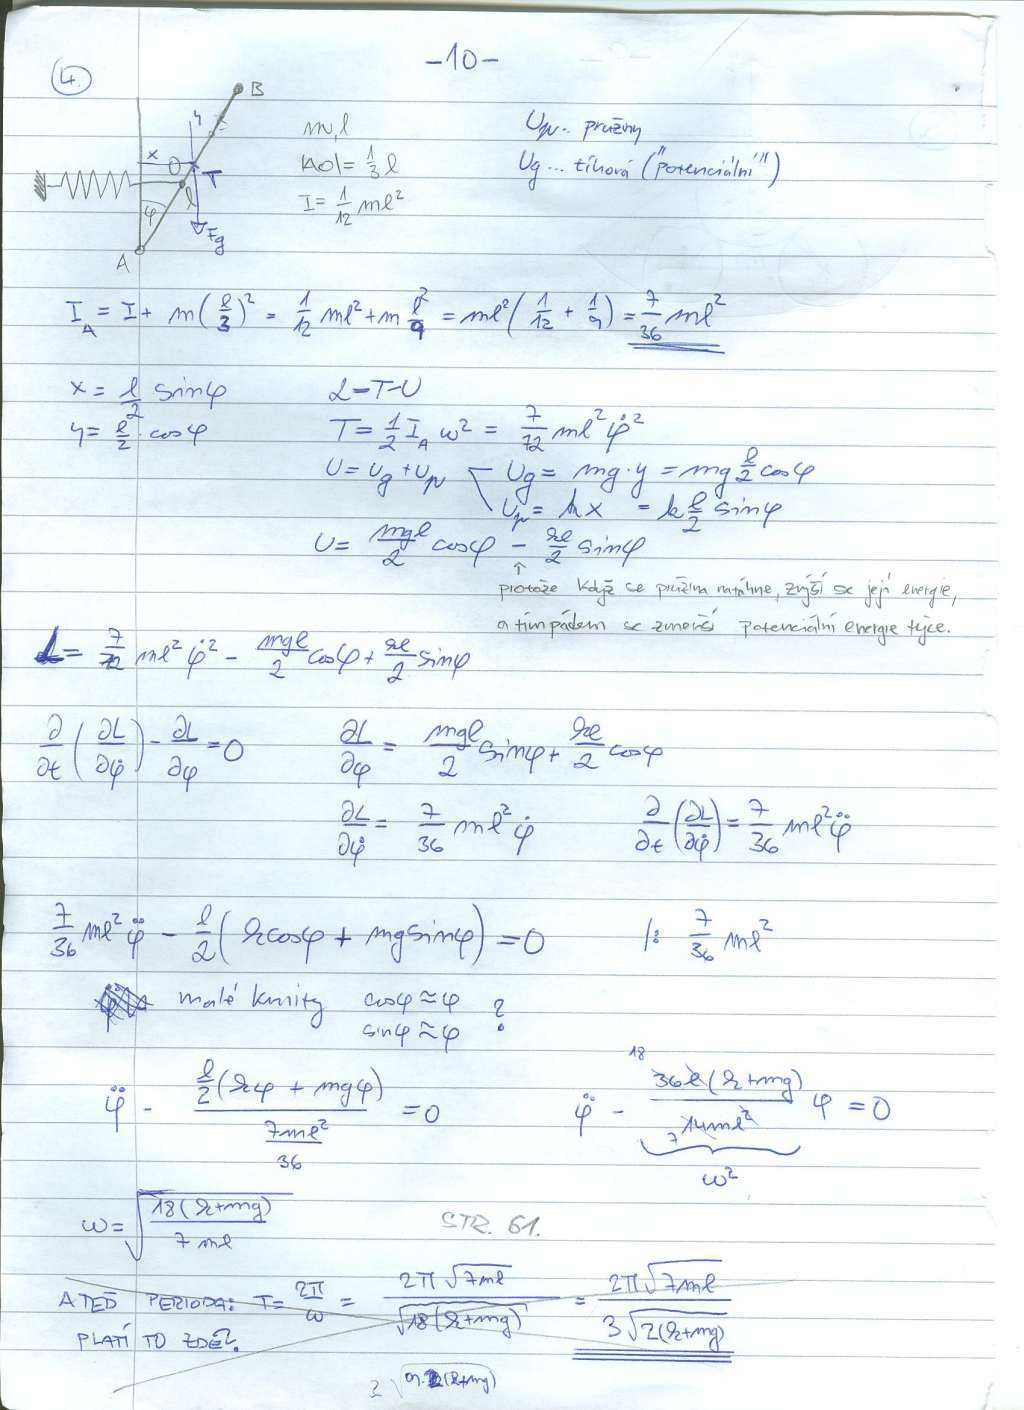 -10-
4.
B
y
x
O
T
l
φ
Fg
A
m, l
|AO| = 1/3 l
I = 1/12 ml²
Up.. pružiny
Ug... tíhová ("potenciální")
I_A = I + m(l/3)² = 1/12 ml² + m l²/9 = ml²(1/12 + 1/9) = 7/36 ml²
x = l/2 sinφ
y = l/2 · cosφ
L = T-U
T = 1/2 I_A ω² = 7/72 ml² φ̇²
U = Ug + Up
Ug = mg·y = mg l/2 cosφ
Up = kx = k l/2 sinφ
U = mgl/2 cosφ - kl/2 sinφ
↑
protože když se pružina natáhne, zvýší se její energie,
a tím pádem se zmenší potenciální energie tyče.
L = 7/72 ml² φ̇² - mgl/2 cosφ + kl/2 sinφ
∂/∂t (∂L/∂φ̇) - ∂L/∂φ = 0
∂L/∂φ = mgl/2 sinφ + kl/2 cosφ
∂L/∂φ̇ = 7/36 ml² φ̇
∂/∂t (∂L/∂φ̇) = 7/36 ml² φ̈
7/36 ml² φ̈ - l/2 (k cosφ + mg sinφ) = 0 /: 7/36 ml²
malé kmity cosφ ≈ φ ?
sinφ ≈ φ
φ̈ - l/2 (kφ + mgφ) / (7ml²/36) = 0
18
φ̈ - 36l(k+mg) / 14ml² φ = 0
7
ω²
ω = √(18(k+mg) / 7ml)
STR. 61.
A TEĎ PERIODA: T = 2π/ω = 2π√7ml / √18(k+mg) = 2π√7ml / 3√2(k+mg)
PLATÍ TO ZDE?